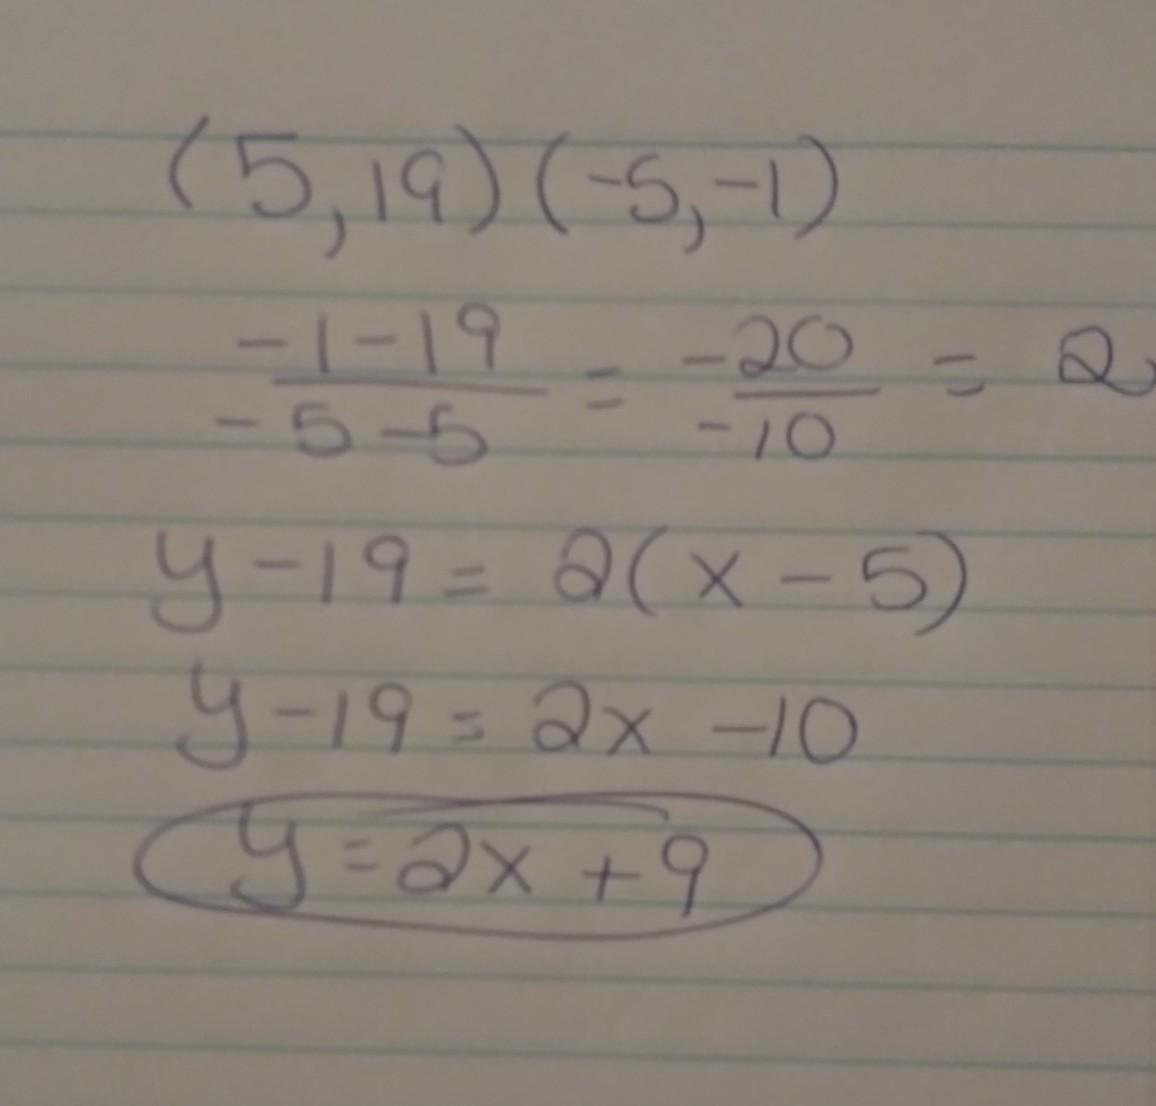 (5,19)(-5,-1)
-1-19/-5-5 = -20/-10 = 2
y-19=2(x-5)
y-19=2x-10
y=2x+9